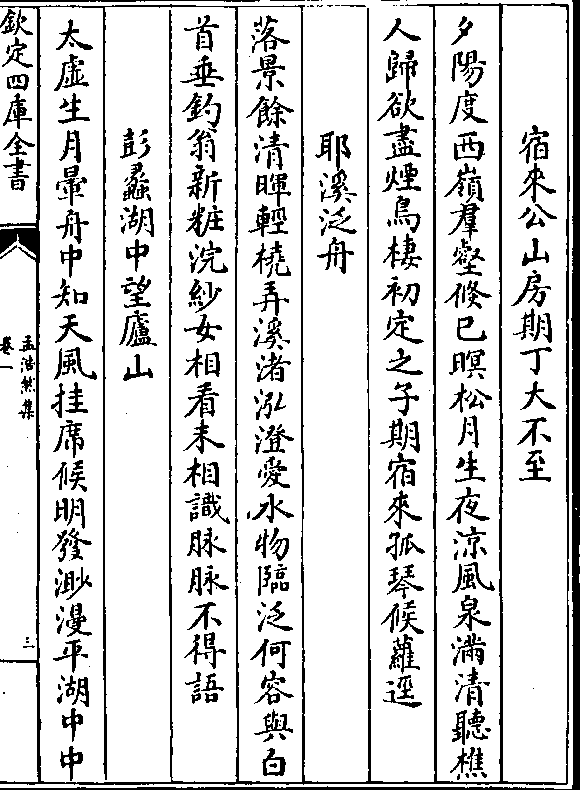 宿來公山房期丁大不至
夕陽度西嶺羣壑倐已暝松月生夜涼風泉滿清聽樵
人歸欲盡煙鳥棲初定之子期宿來孤琴候蘿逕
耶溪泛舟
落景餘清暉輕橈弄溪渚泓澄愛水物臨泛何容與白
首垂釣翁新粧浣紗女相看未相識脉脉不得語
彭蠡湖中望廬山
太虛生月暈舟中知天風挂席候明發渺漫平湖中中
欽定四庫全書
孟浩然集
卷一
三